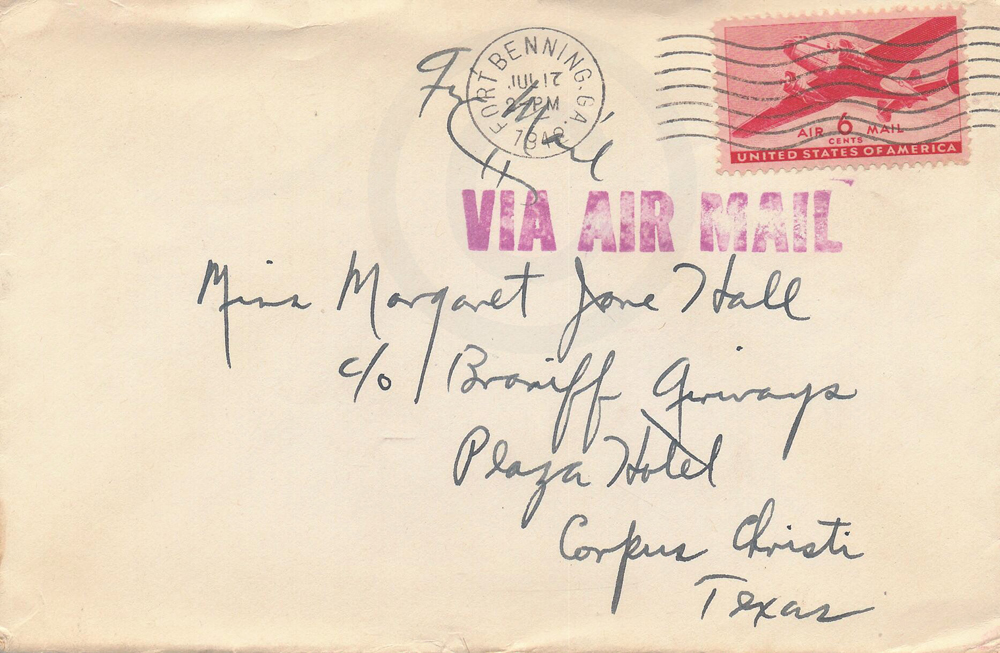 FORT BENNING, GA.
JUL 17
PM
Air Mail
AIR 6 MAIL
CENTS
UNITED STATES OF AMERICA
VIA AIR MAIL
Miss Margaret Jane Hall
c/o Braniff Airways
Plaza Hotel
Corpus Christi
Texas